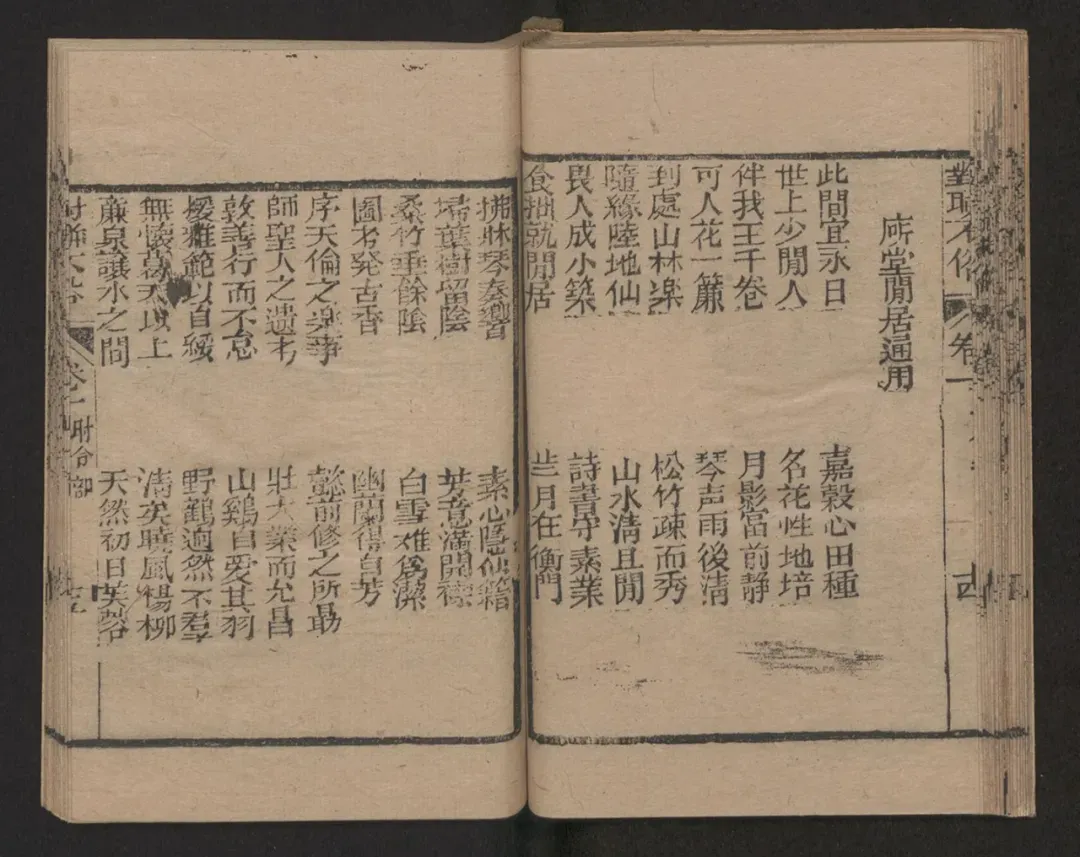 廳堂閒居通用
此間宜永日
世上少閒人
伴我王千卷
可人花一簾
到處山林楽
隨緣陸地仙
畏人成小築
食拙就閒居
嘉穀心田種
名花性地培
月影窗前静
琴声雨後清
松竹疎而秀
山水清且閒
詩書守素業
月在衡門
拂牀琴奏響
掃葉樹留陰
桑竹垂餘陰
圖書発古香
序天倫之楽事
師聖人之遺書
敦善行而不怠
援雅範以自綏
無懐葛天以上
廉泉讓水之間
素心隱仙籍
芳意满開襟
白雪难為潔
幽蘭得自芳
懿前修之所勗
壯大業而允昌
山鷄自愛其羽
野鶴逈然不羣
清英曉風楊柳
天然初日芙蓉
卷一
卷一 附合御